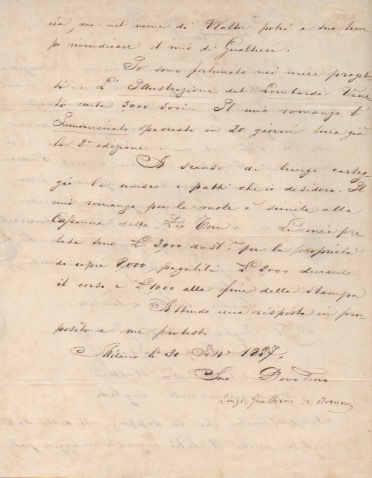 cia, ma nel nome di Walter potrò a suo tem
po rivendicare il mio di Gualtieri.
Io sono fortunato nei miei proget
ti e L'Illustrazione del Lombardo-Vene
to conta 3000 Socj. Il mio romanzo l'
Innominato spacciato in 20 giorni tocca già
la 2ª edizione.
A scanso di lungo carteg
gio le avviso i patti che io desidero. Il
mio romanzo per la mole è simile alla
Capanna dello Zio Tom e le mie pre
tese sono £ 3,000 aust.e per la proprietà
di copie 2,000, pagabili £ 2000 durante
il corso e £ 1000 alla fine della stampa
Attendo una risposta in pro
posito e mi protesto
Milano li 30 1857.
Suo Devotmo
Luigi Gualtieri da